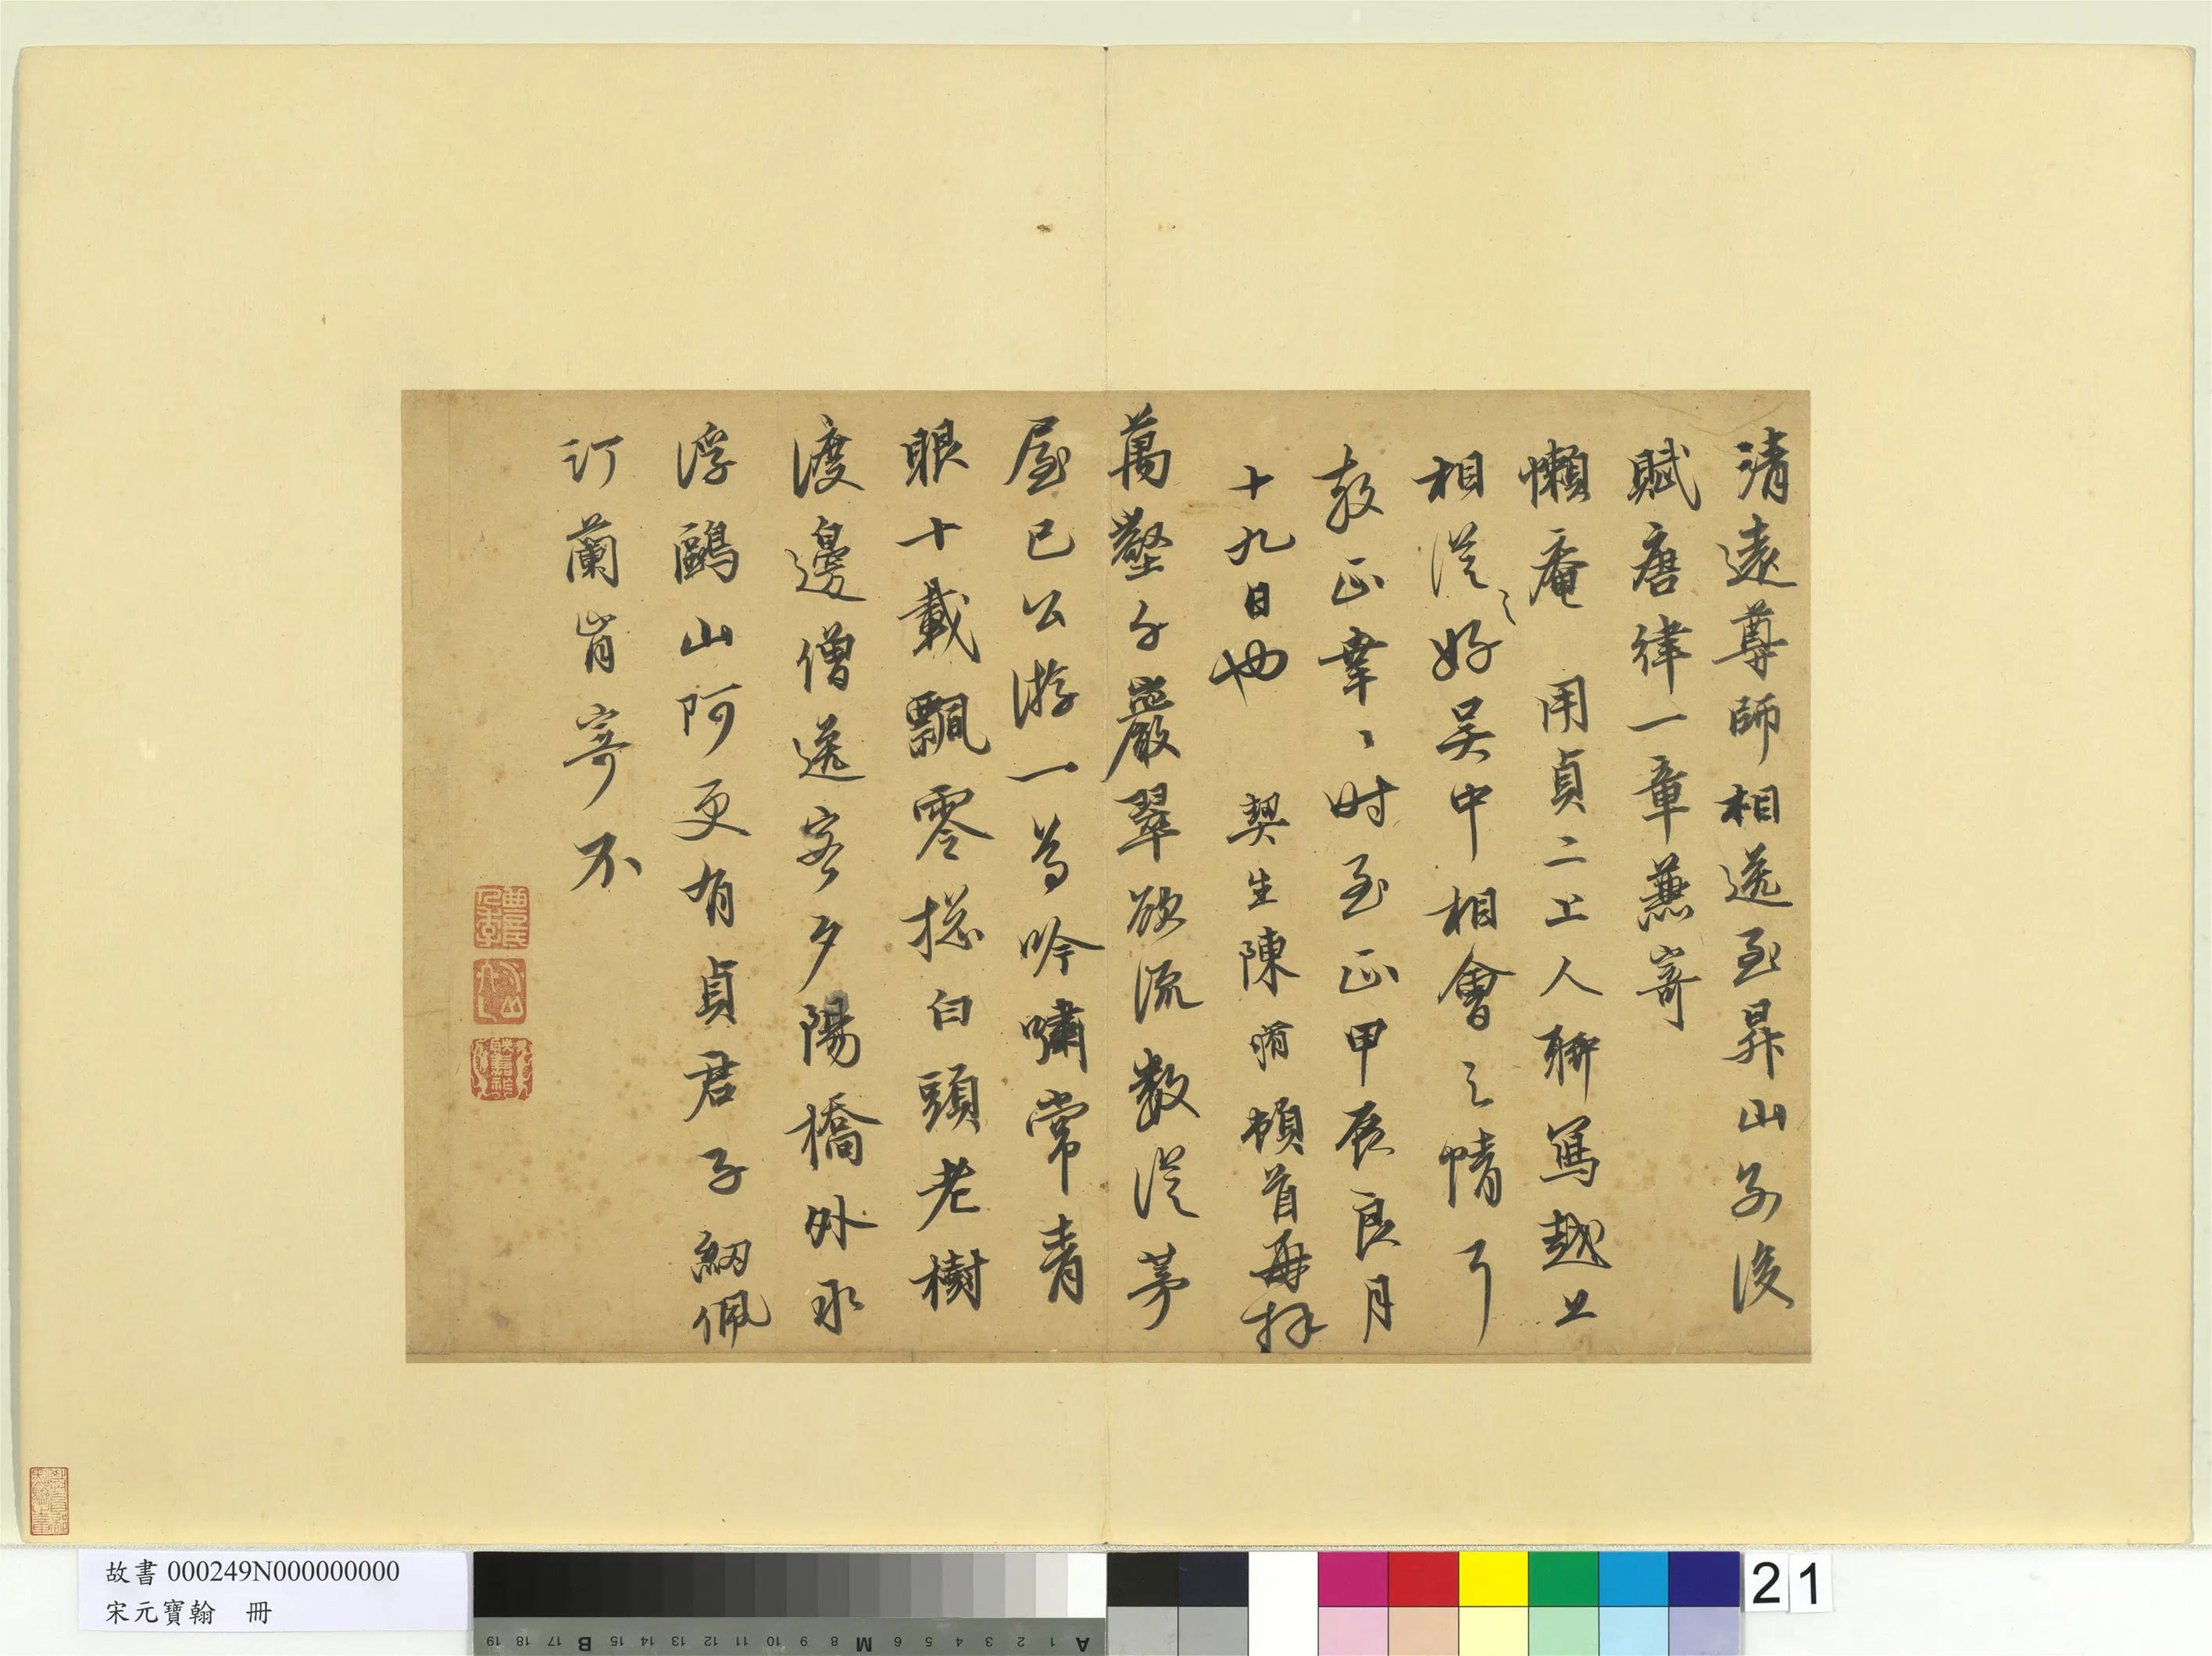 清遠尊師相送至昇山別後
賦唐律一章兼寄
懶庵 用貞二上人聊寫越上
相從之好吳中相會之情耳
教正幸幸時至正甲辰良月
十九日也 契生陳頓首再拜
萬壑千巖翠欲流數從茅
屋已公游一為吟嘯常青
眼十載飄零搃白頭老樹
渡邊僧送客夕陽橋外水
浮鷗山阿更有貞君子紉佩
汀蘭肯寄不
故書 000249N000000000
宋元寶翰 冊
21
A 1 2 3 4 5 6 M 8 9 10 11 12 13 14 15 B 17 18 19